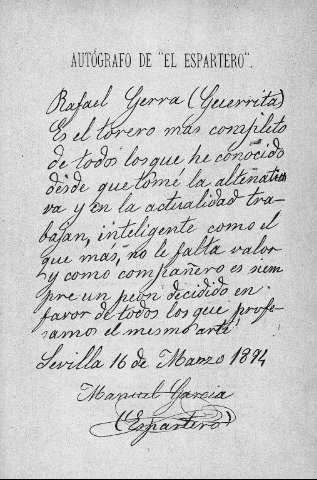 AUTÓGRAFO DE "EL ESPARTERO".
Rafael Gerra (Gecerrita)
Es el torero mas completo
de todos los que he conocido
desde que tomé la alternati
va y en la actualidad tra-
bajan, inteligente como el
que más, no le falta valor
y como compañero es siem
pre un peon decidido en
favor de todos los que profe-
samos el mismo arte
Sevilla 16 de Marzo 1894
Manuel Garcia
(Espartero)